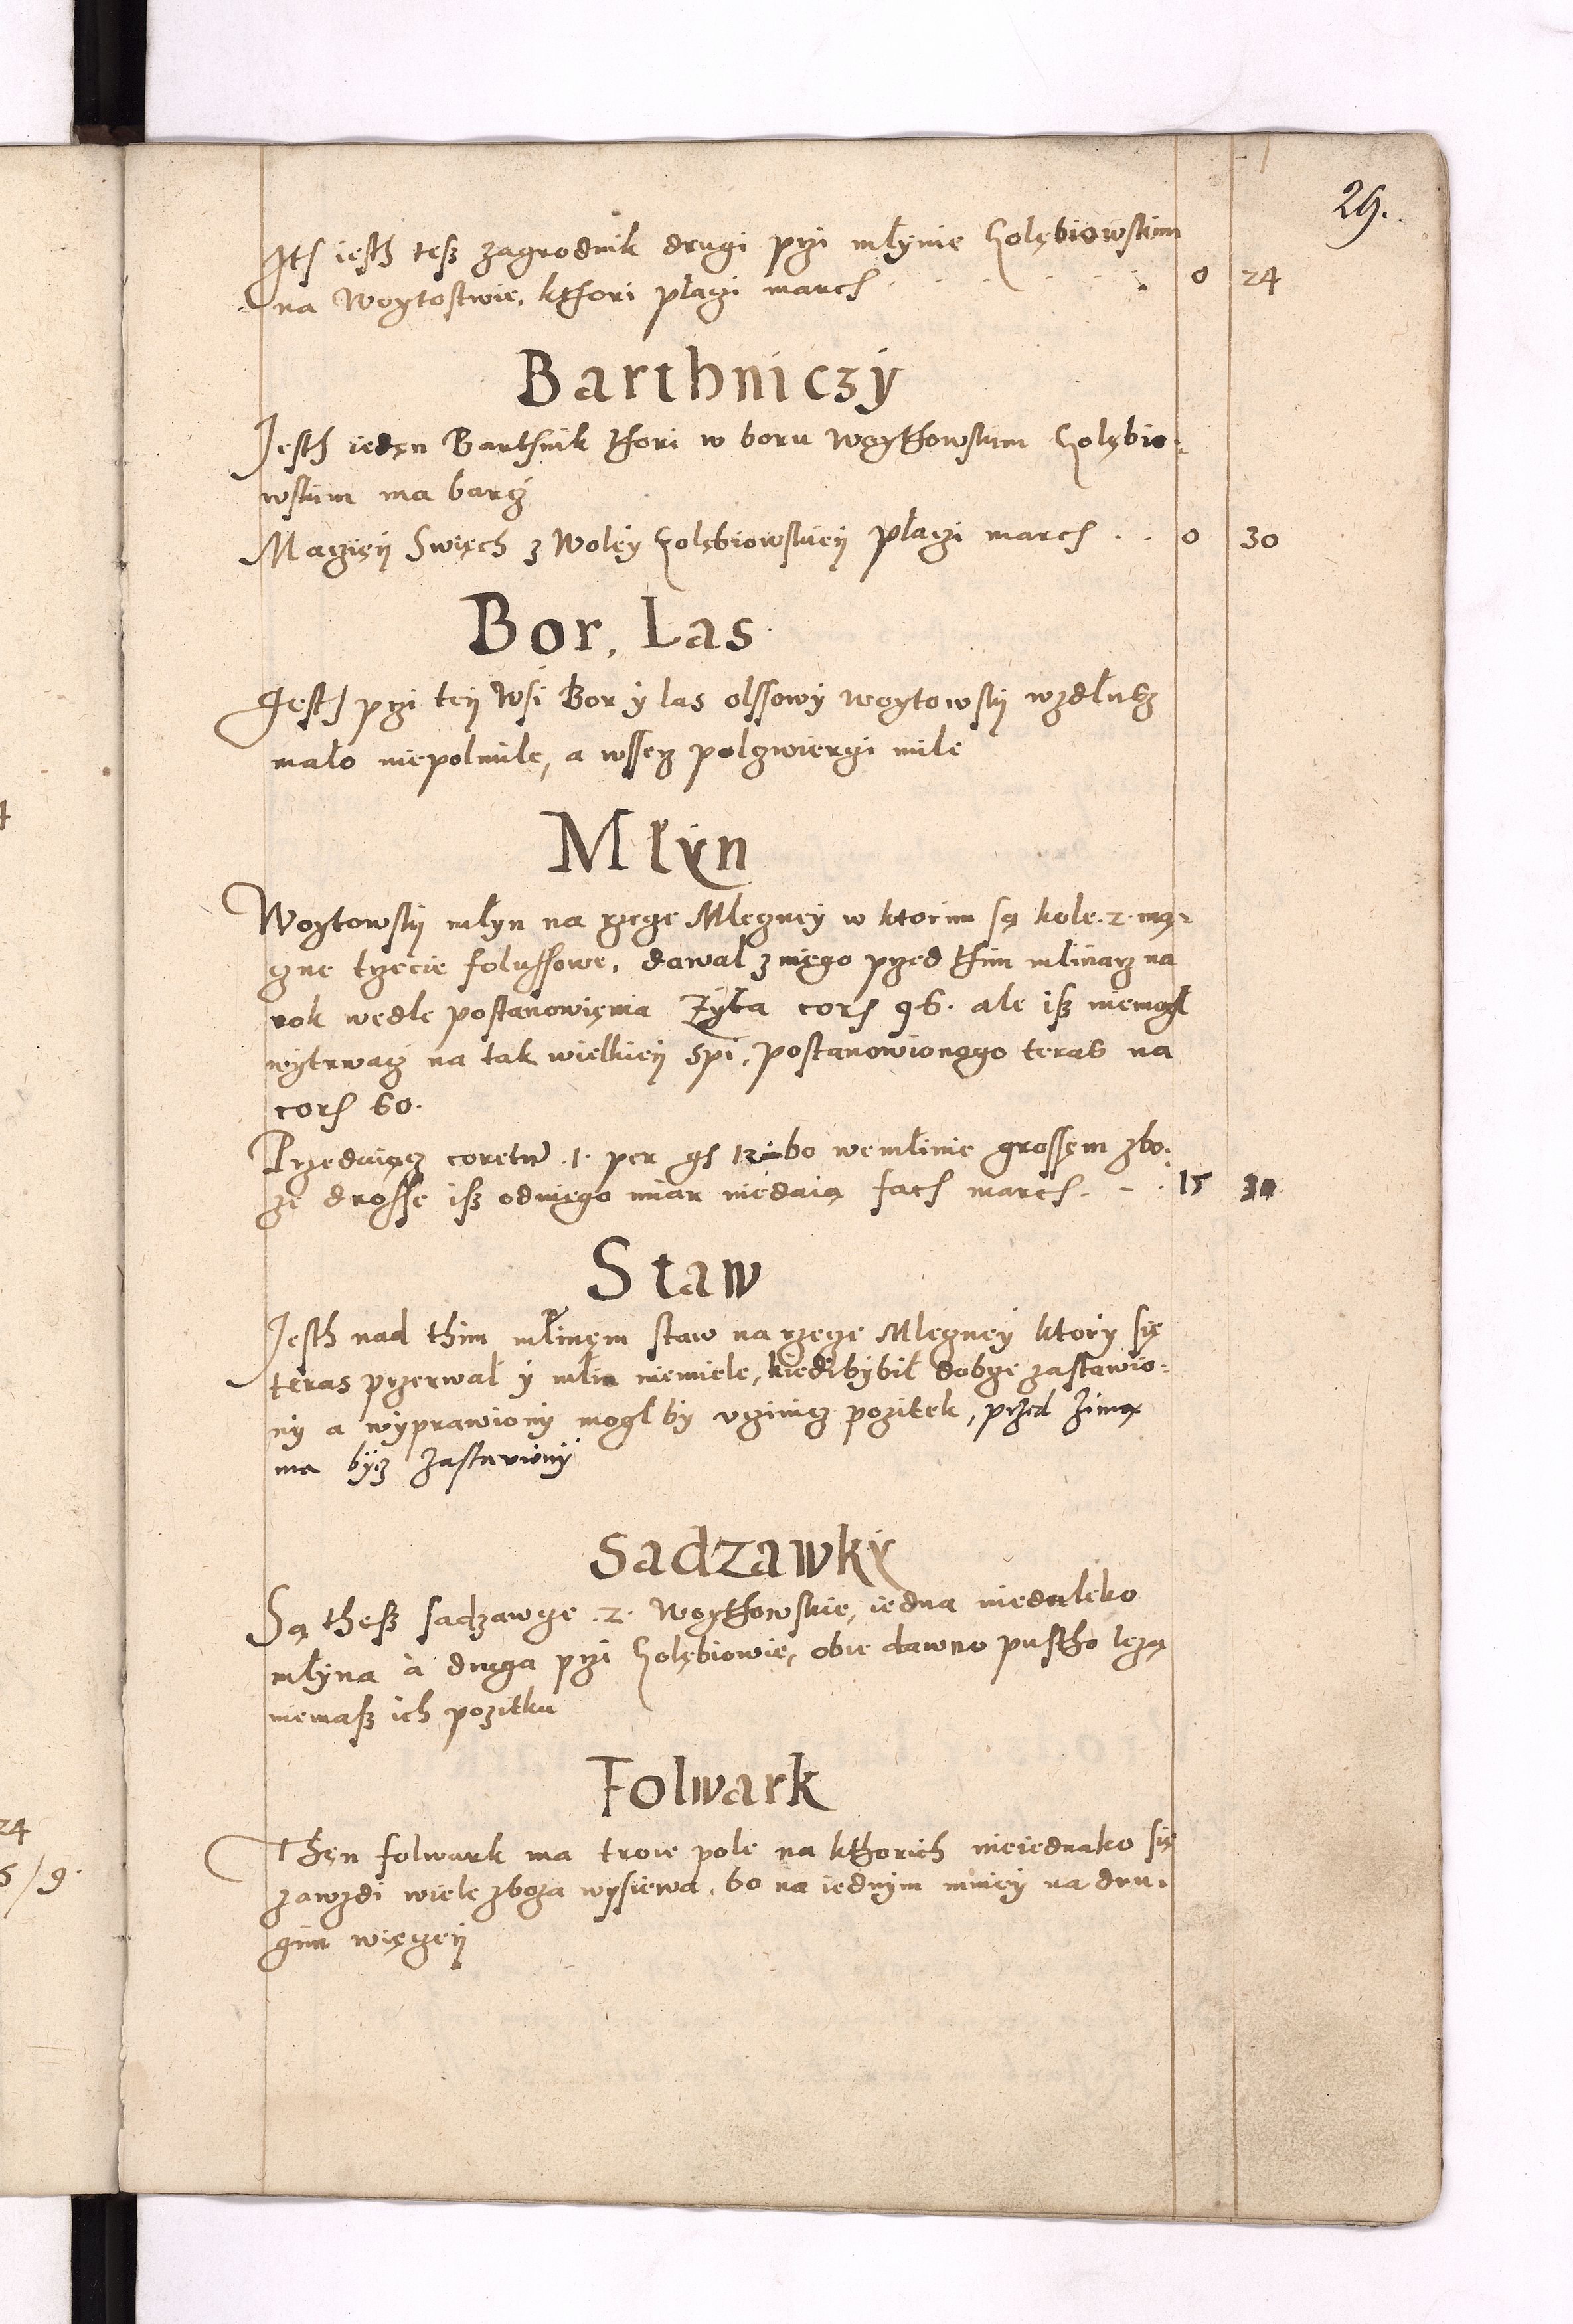 29.
Ite iesth tesz zagrodnik drugi przi młynie Golębiowskim
na Woytostwie, kthori płaczi march 0 24
Barthniczÿ
Jesth iedęn Barthnik kthori w boru woythowskim Golębio-
wskim ma barcz
Maczieÿ Swięch z Woleÿ Golębiowskieÿ płaczi march 0 30
Bor, Las
Jesth przi teÿ Wsi Bor ÿ las olssowy woytowskÿ wzdłusz
mało niepolmile, a wsserz polczwierczi mile
Młÿn
Woytowskÿ młyn na rzecze Mleczneÿ w ktorim są kole .2. mą-
czne trzecie folussowe, dawał z niego przed thim mlinarz na
rok wedle postanowięnia Zyta cor 96. ale isz niemogł
wytrwacz na tak wielkieÿ spi, postanowionego teras na
cor 60.
Przedaiącz coretw .1. per gs 12 bo wemłinie grossęm zbo-
ze drosse isz odniego miar niedaią fach march 15 30
Staw
Jesth nad thim młinęm staw na rzecze Mleczneÿ ktorÿ się
teras przerwał ÿ młin niemiele, kiedibÿbił dobrze zastawio-
nÿ a wÿprawionÿ mogł by vczinicz pozitek, przed zimą
ma bÿcz zastawionÿ
Sadzawkÿ
Są thesz sadzawcze .2. Woythowskie, iedna niedaleko
młÿna à druga przi Golębiowie, obie dawno pustho lezą
niemasz ich pozitku
Folwark
Thęn folwark ma troie pole na kthorich nieiednako się
zawzdi wiele zboza wÿsiewa, bo na iednÿm mnieÿ na dru-
gim więczeÿ
24
9.